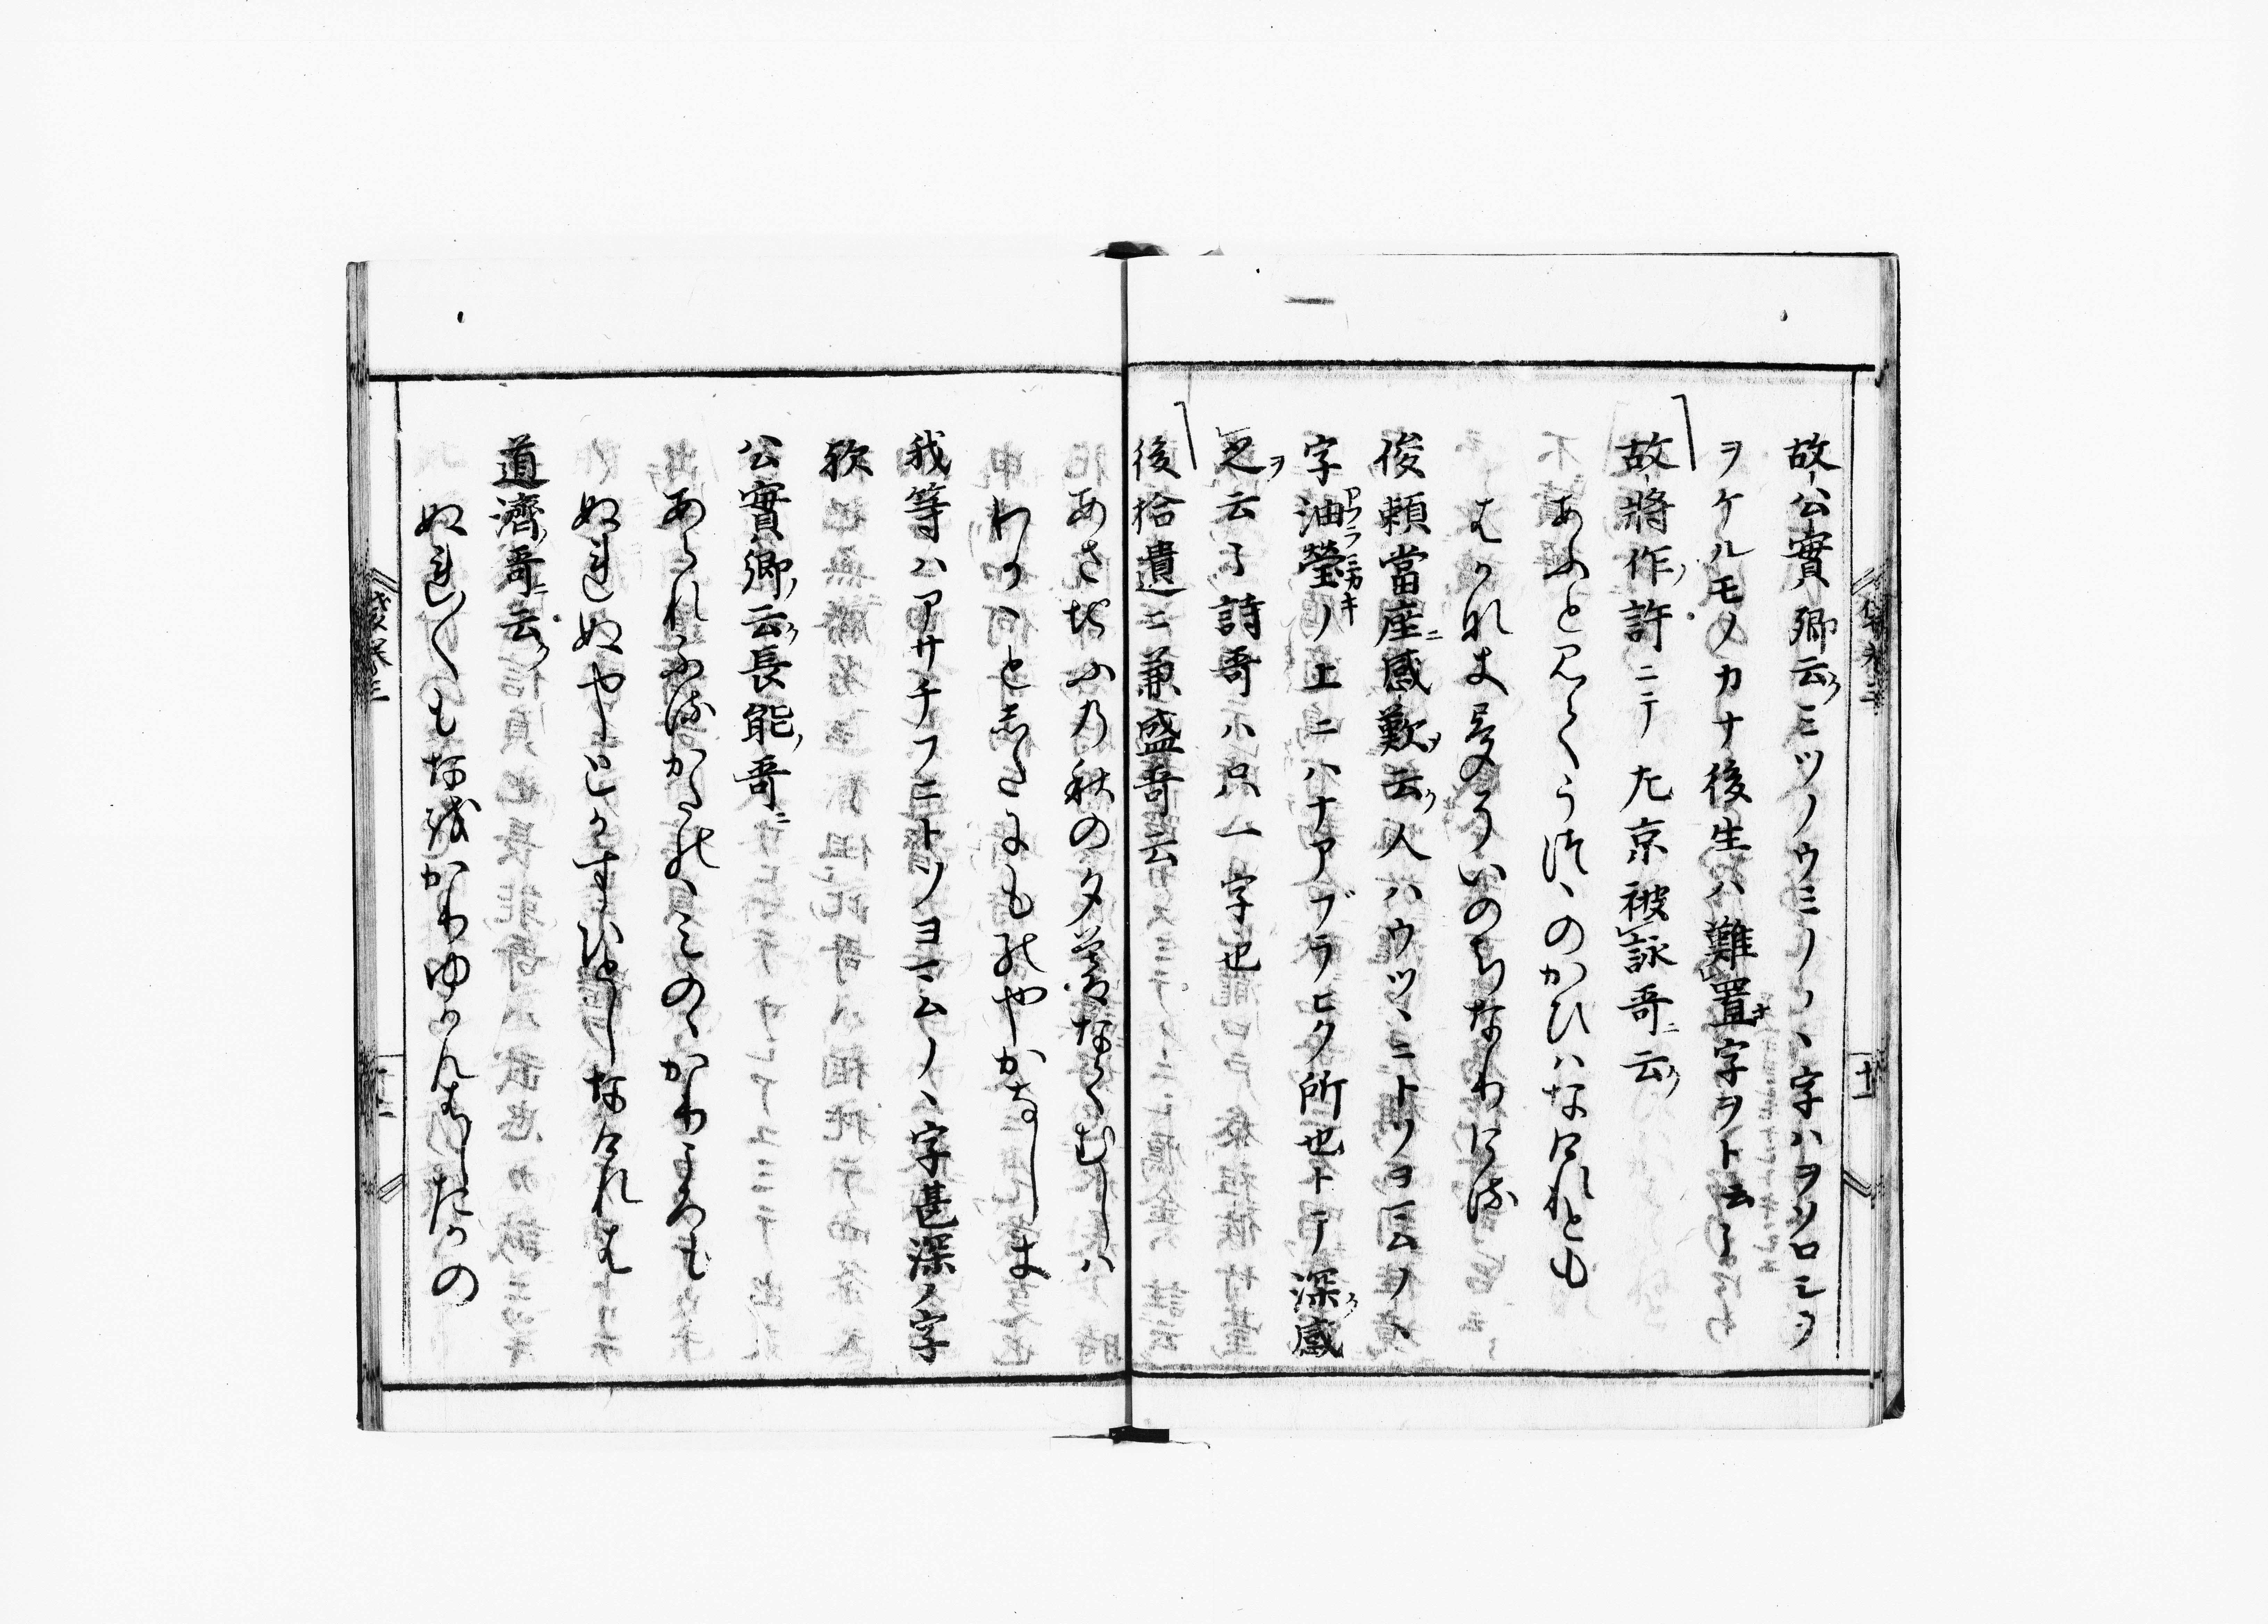 故公實卿云ミツノウミノヽ字ハヲソロシウ
ヲケルモノカナ後生ハ難置字ヲト云々
故將作許ニテ左京被詠哥ニ云
あふとみてうつゝのかひハなけれとも
はかなき夢そいのちなりける
俊頼當座ニ感歎云人ハウツヽニトソヨマムノヽ
字油瑩ノ上ニハナアブラヒク所也トテ深感
アフラミカキ
之云々詩哥ハ只八一字也
後拾遺ニ兼盛哥云
あさちふの秋の夕暮なくむしハ
わかゝとしたにものやかなしき
我等ハアサチフニトソヨマムノヽ字甚深ノ字
歟
公實卿云長能哥ニ
あられふるかたのゝみのゝかりころも
ぬれぬやとかす人しなけれは
道濟哥ニ云
ぬれ〳〵もなをかりゆかんはしたかの
十二